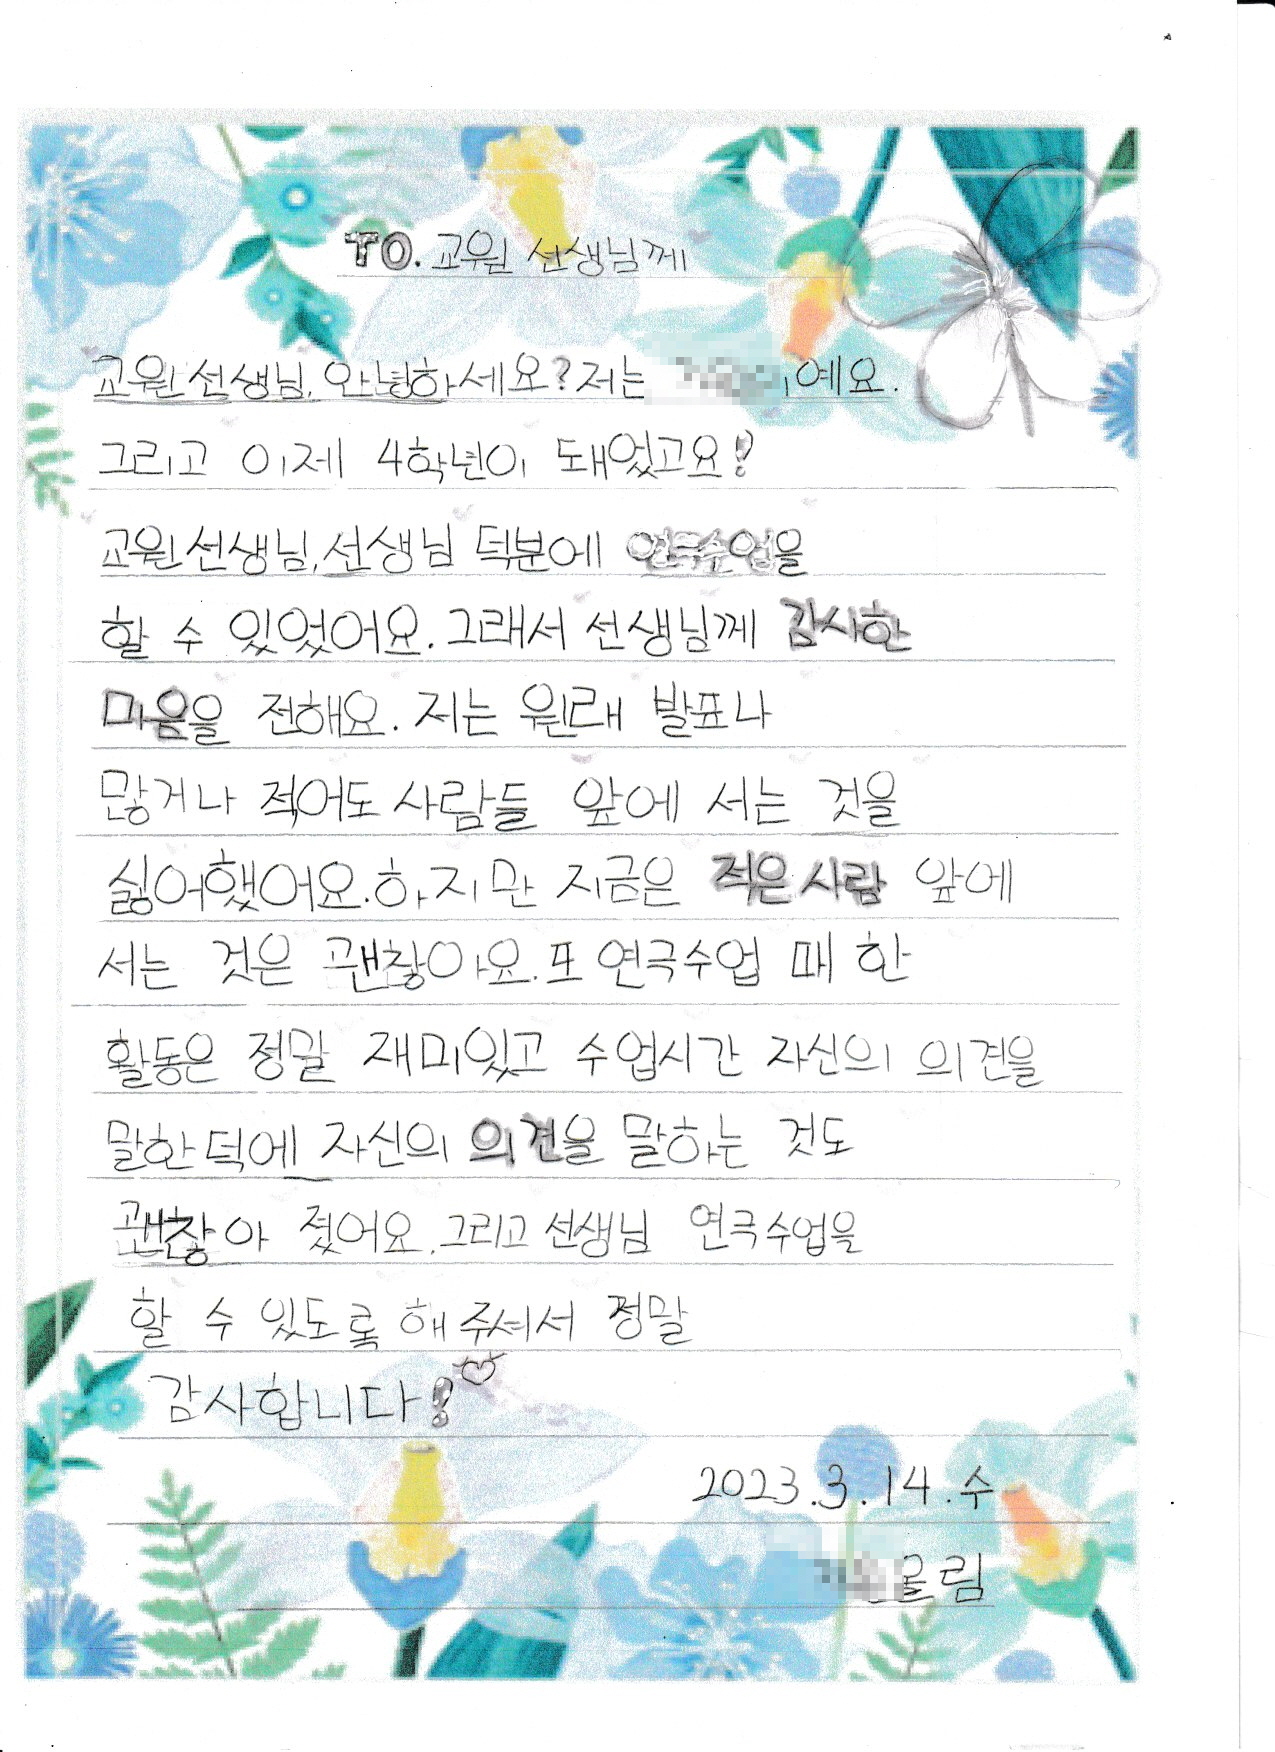 TO. 교원 선생님께
교원 선생님, 안녕하세요? 저는 예요.
그리고 이제 4학년이 돼었고요!
교원 선생님, 선생님 덕분에 연극수업을
할 수 있었어요. 그래서 선생님께 감사한
마음을 전해요. 저는 원래 발표나
많거나 적어도 사람들 앞에 서는 것을
싫어했어요. 하지만 지금은 적은 사람 앞에
서는 것은 괜찮아요. 또 연극수업 때 한
활동은 정말 재미있고 수업시간 자신의 의견을
말한 덕에 자신의 의견을 말하는 것도
괜찮아 졌어요. 그리고 선생님 연극수업을
할 수 있도록 해 주셔서 정말
감사합니다!
2023.3.14.수
올림